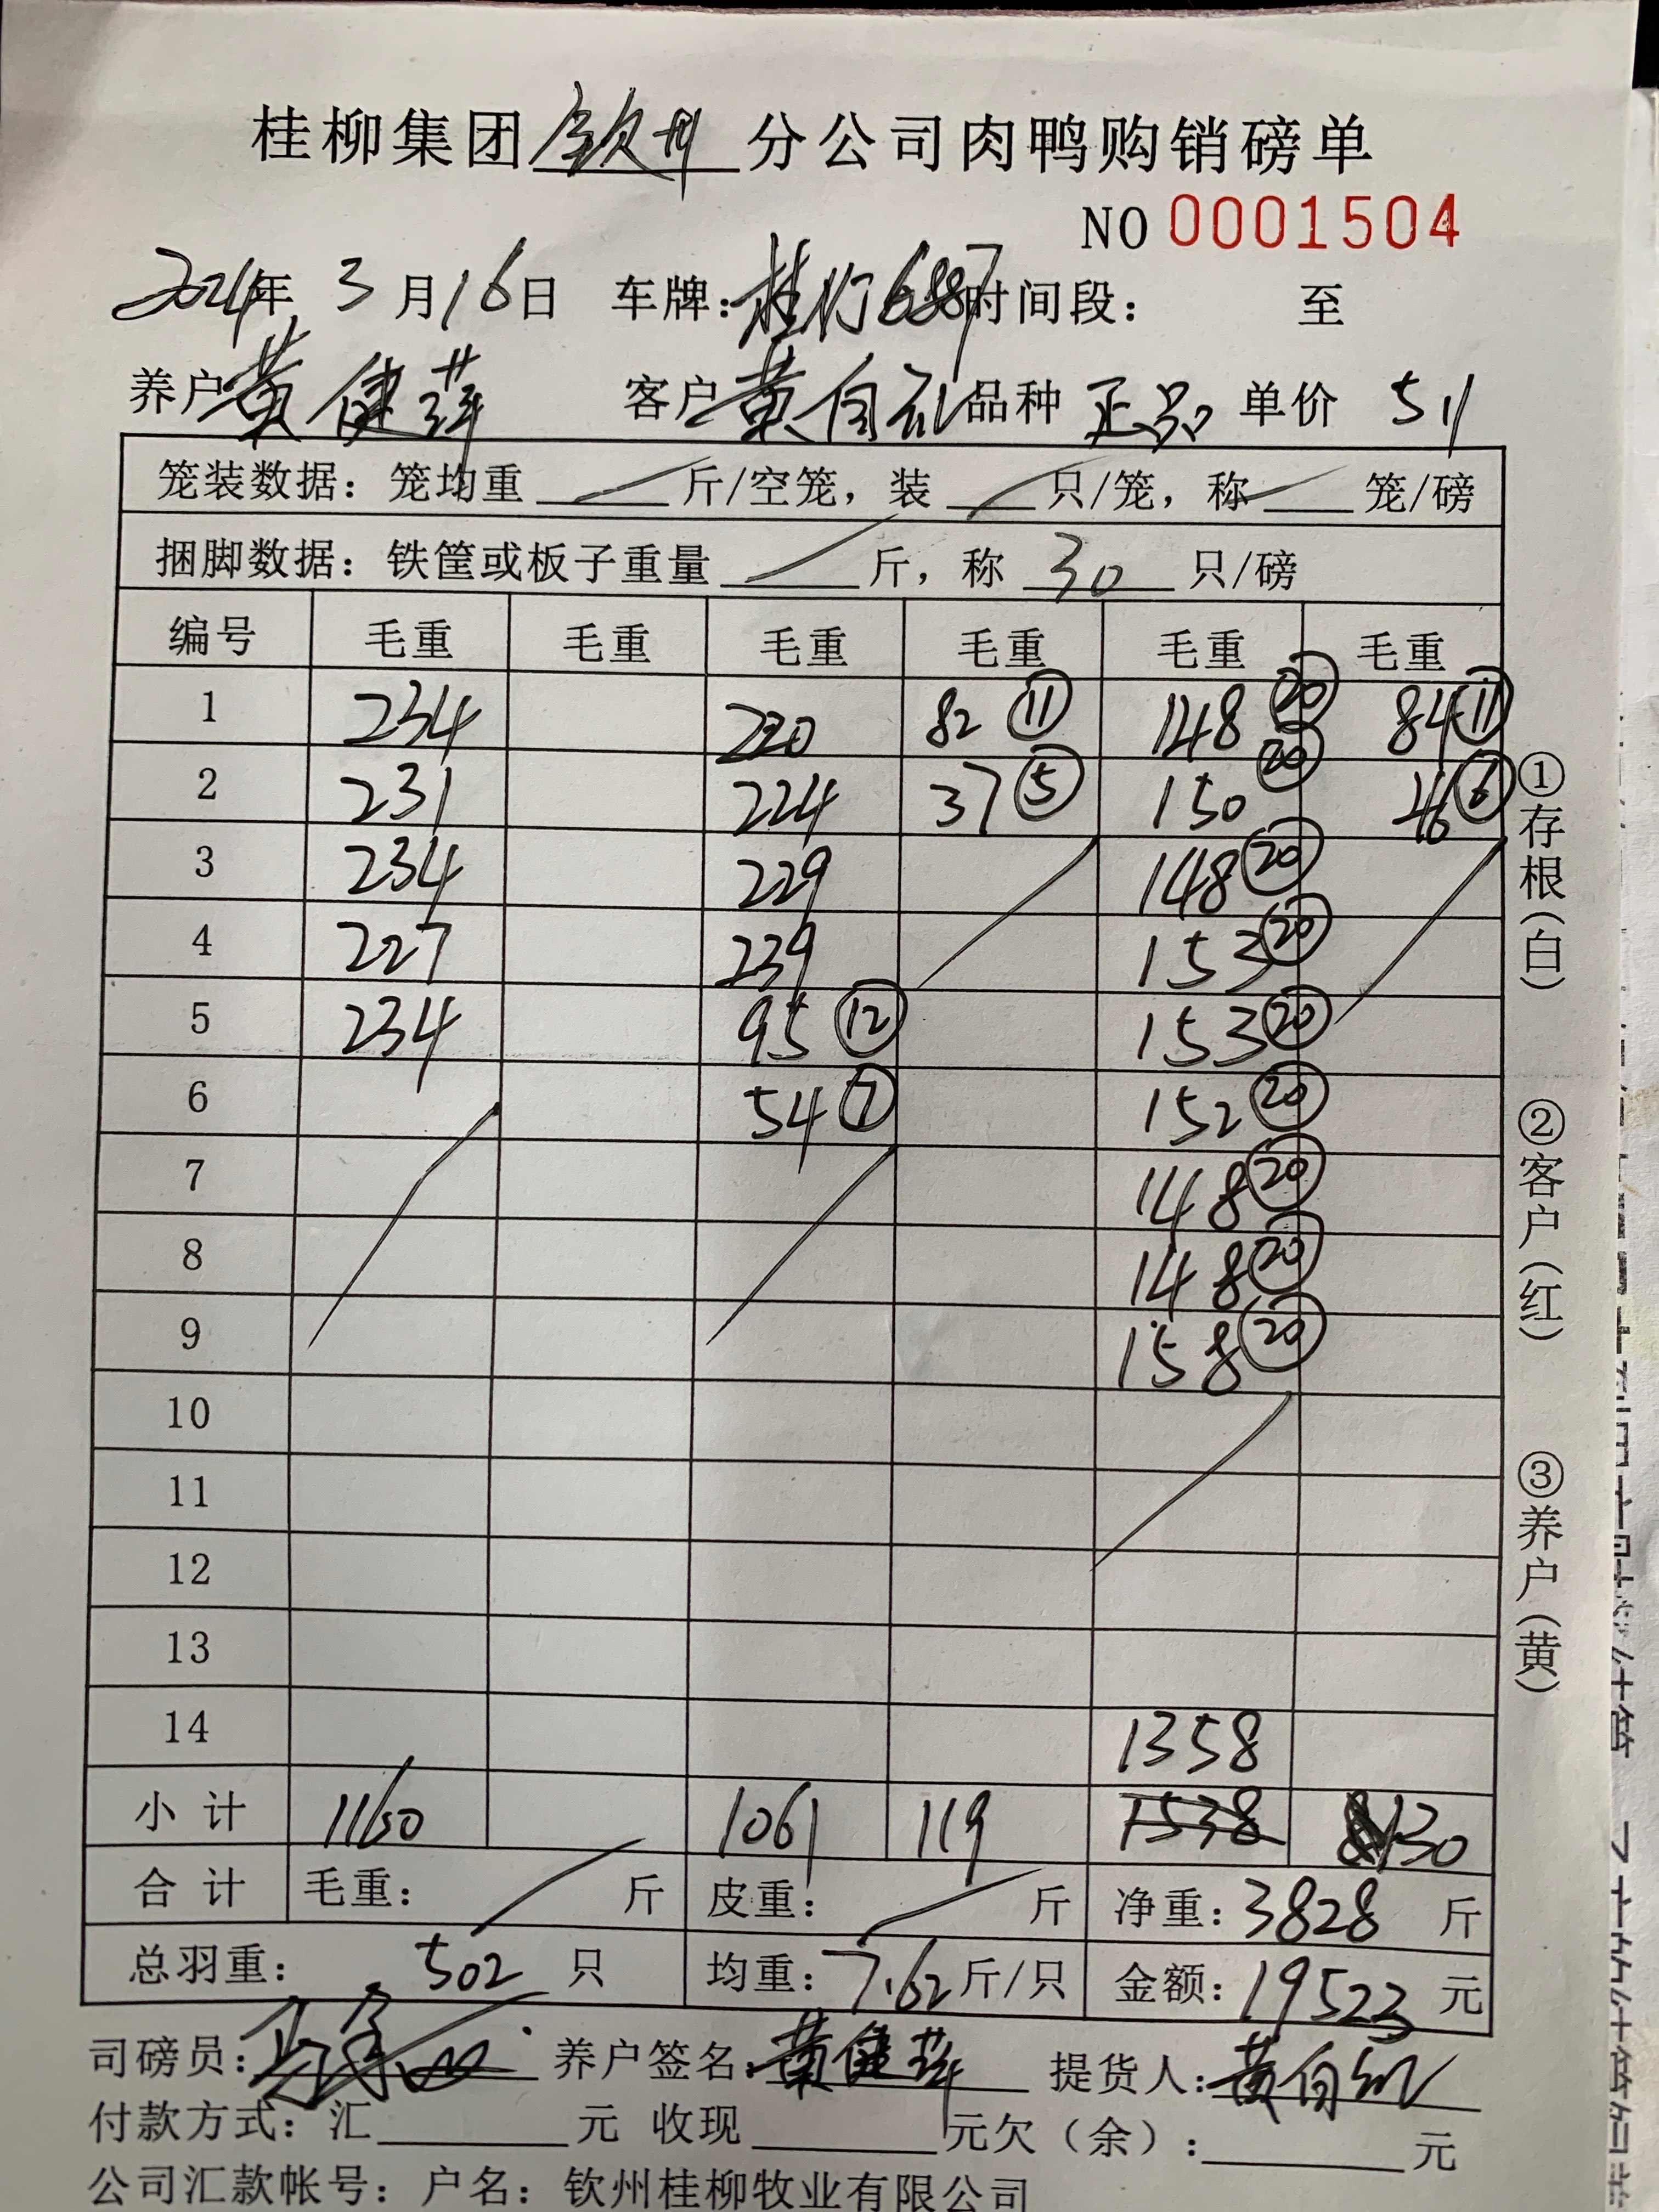 桂柳集团钦州分公司肉鸭购销磅单
NO 0001504
2024年 3月16日 车牌: 时间段: 至
养户黄健 客户黄 品种 正品 单价 5.1
笼装数据:笼均重 斤/空笼,装 只/笼,称 笼/磅
捆脚数据:铁筐或板子重量 斤,称 30 只/磅
编号 毛重 毛重 毛重 毛重 毛重 毛重
1 234 220 82 ⑪ 148 ⑳ 84 ⑪
2 231 224 37 ⑤ 150 ⑳ 46 ⑥
3 234 229 148 ⑳
4 227 239 153 ⑳
5 234 95 ⑫ 153 ⑳
6 54 ⑦ 152 ⑳
7 148 ⑳
8 148 ⑳
9 158 ⑳
10
11
12
13
14 1358
小计 1160 1061 119 1538 130
合计 毛重: 斤 皮重: 斤 净重:3828 斤
总羽重: 502 只 均重:7.62斤/只 金额:19523 元
司磅员: 养户签名:黄健 提货人:黄
付款方式:汇 元 收现 元欠(余): 元
公司汇款帐号:户名:钦州桂柳牧业有限公司
①存根(白) ②客户(红) ③养户(黄)